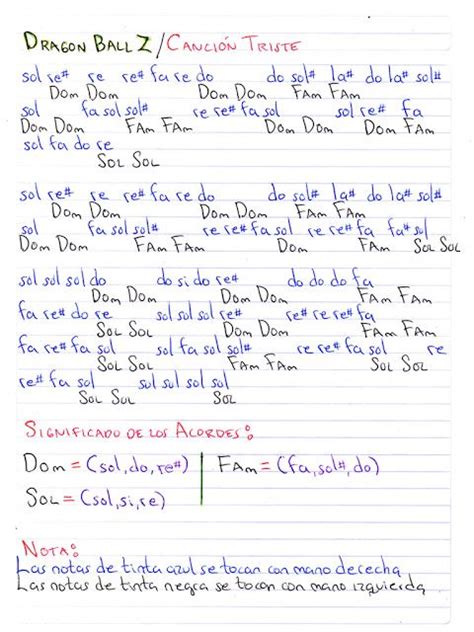 DRAGON BALL Z/CANCIÓN TRISTE
sol re# re re# fa re do do sol# la# do la# sol#
Dom Dom Dom Dom FAm FAm
sol fa sol sol# re re# fa sol sol re# fa
Dom Dom FAm FAm Dom Dom Dom FAm
sol fa do re
SOL SOL
sol re# re re# fa re do do sol# la# do la# sol#
Dom Dom Dom Dom FAm FAm
sol fa sol sol# re re# fa sol re re# fa fa# sol
Dom Dom FAm FAm Dom Dom FAm SOL SOL
sol sol sol do do si do re# do do do fa
Dom Dom Dom Dom FAm FAm
fa re# do re sol sol sol re# re# re re# fa
SOL SOL Dom Dom FAm FAm
fa re# fa sol sol fa sol sol# re re# fa sol re
SOL SOL FAm FAm Dom Dom
re# fa sol sol sol sol sol
SOL SOL SOL
SIGNIFICADO DE LOS ACORDES:
Dom = (sol, do, re#) FAm = (fa, sol#, do)
SOL = (sol, si, re)
NOTA:
Las notas de tinta azul se tocan con mano derecha
Las notas de tinta negra se tocan con mano izquierda